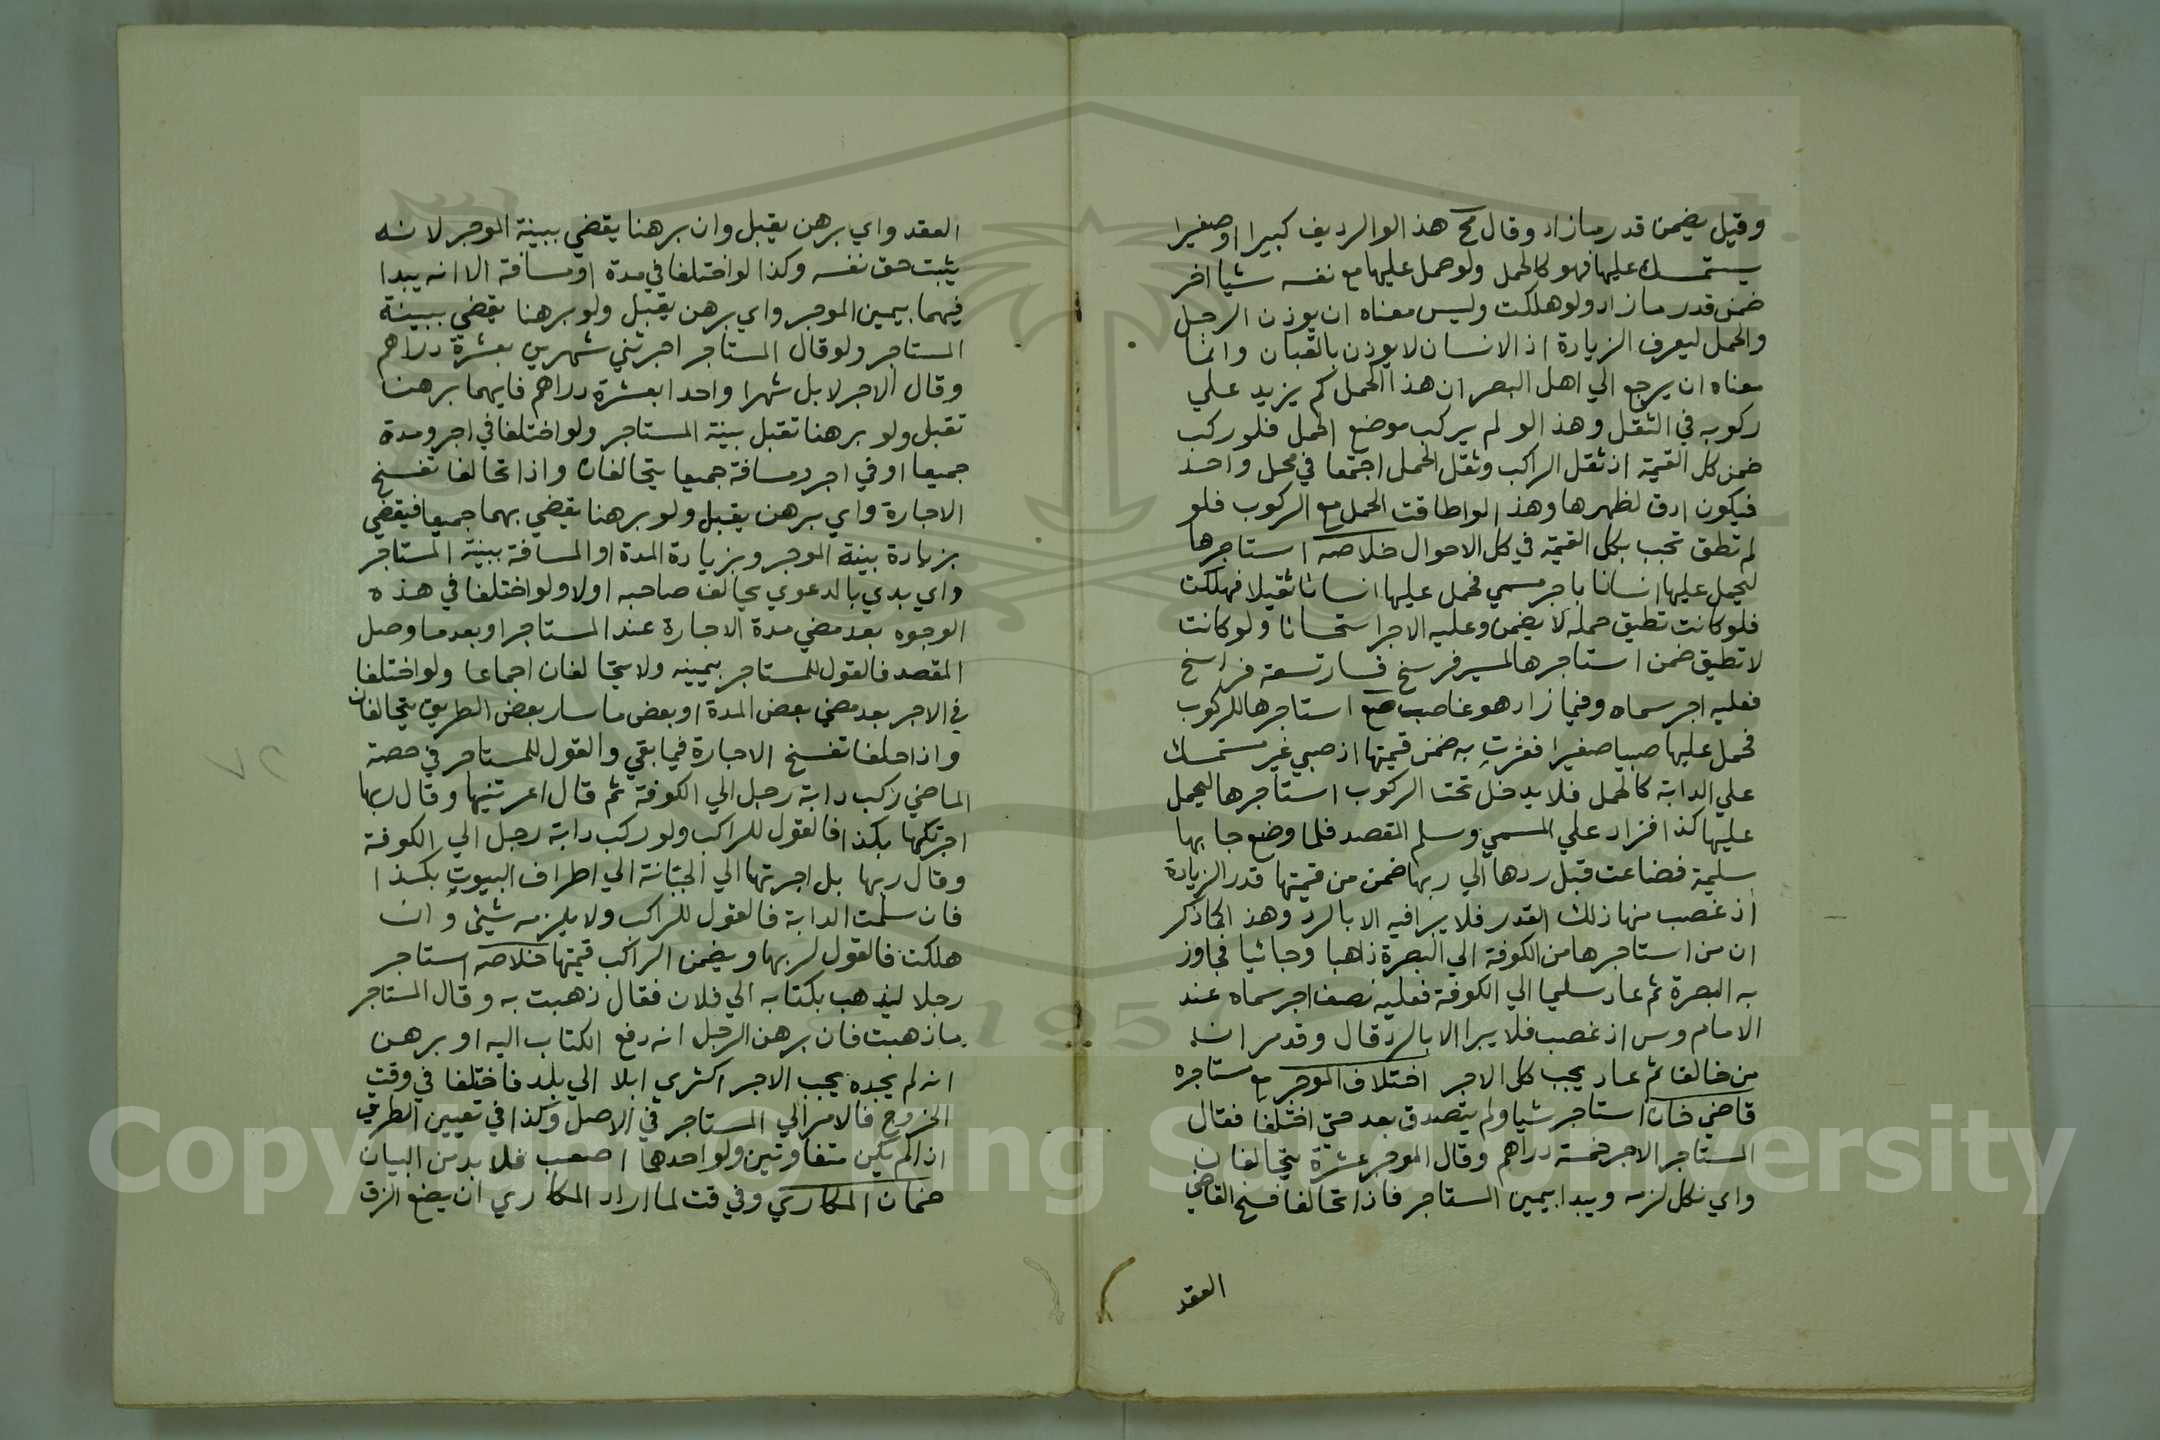 وقيل يضمن قدر ما زاد وقال مح هذا لو الرديف كبيرا او صغيرا
يستمسك عليها فهو كالحمل ولو حمل عليها مع نفسه شيا اخر
ضمن قدر ما زاد ولو هلكت وليس معناه ان يوزن الرجل
والحمل ليعرف الزيادة اذ الانسان لا يوزن بالقبان وانما
معناه ان يرجع الي اهل البصر ان هذا الحمل كم يزيد علي
ركوبه في الثقل وهذا لو لم يركب موضع الحمل فلو ركب
ضمن كل القيمة اذ ثقل الراكب وثقل الحمل اجتمعا في محل واحد
فيكون ادق لظهرها وهذا لو اطاقت الحمل مع الركوب فلو
لم تطق تجب بكل القيمة في كل الاحوال خلاصه استاجرها
ليحمل عليها انسانا باجر مسمي فحمل عليها انسانا ثقيلا فهلكت
فلو كانت تطيق حمله لا يضمن وعليه الاجر استحسانا ولو كانت
لا تطيق ضمن استاجرها لمسير فرسخ فسار تسعة فراسخ
فعليه اجر سماه وفيما زاد هو غاصب استاجرها للركوب
فحمل عليها صبيا صغيرا فعثرت به ضمن قيمتها اذ صبي غير مستمسك
علي الدابة كالحمل فلا يدخل تحت الركوب استاجرها ليحمل
عليها كذا فزاد علي المسمي وسلم المقصد فلما وضع جا بها
سليمة فضاعت قبل ردها الي ربها ضمن من قيمتها قدر الزيادة
اذ غصب منها ذلك القدر فلا يبرا فيه الا بالرد وهذا كما ذكر
ان من استاجرها من الكوفة الي البصرة ذاهبا وجائيا فجاوز
به البصرة ثم عاد سليما الي الكوفة فعليه نصف اجر سماه عند
الامام وس اذ غصب فلا يبرا الا بالرد قال وقد مر ان
من خالف ثم عاد يجب كل الاجر اختلاف الموجر مع مستاجره
قاضي خان استاجر شيا ولم يتصدق بعد حتي اختلفا فقال
المستاجر الاجر خمسة دراهم وقال الموجر عشرة يتحالفان
واي نكل لزمه ويبدا بيمين المستاجر فاذا تحالفا فسخ القاضي
العقد
العقد واي برهن يقبل وان برهنا يقضي ببينة الموجر لانه
يثبت حق نفسه وكذا لو اختلفا في مدة او مسافة الا انه يبدا
فيهما بيمين الموجر واي برهن يقبل ولو برهنا يقضي ببينة
المستاجر ولو قال المستاجر اجرتني شهرين بعشرة دراهم
وقال الاجر لا بل شهرا واحدا بعشرة دراهم فايهما برهنا
تقبل ولو برهنا تقبل بينة المستاجر ولو اختلفا في اجر ومدة
جميعا او في اجر ومسافة جميعا يتحالفان واذا تحالفا تفسخ
الاجارة واي برهن يقبل ولو برهنا يقضي بهما جميعا فيقضي
بزيادة بينة الموجر وبزيادة المدة او المسافة ببينة المستاجر
واي بدي بالدعوي يحالف صاحبه اولا ولو اختلفا في هذه
الوجوه بعد مضي مدة الاجارة عند المستاجر او بعد ما وصل
المقصد فالقول للمستاجر بيمينه ولا يتحالفان اجماعا ولو اختلفا
في الاجر بعد مضي بعض المدة او بعض ما سار بعض الطريق يتحالفان
واذا حلفا تفسخ الاجارة فيما بقي والقول للمستاجر في حصة
الماضي ركب دابة رجل الي الكوفة ثم قال اعرتنيها وقال ربها
اجرتكها بكذا فالقول للراكب ولو ركب دابة رجل الي الكوفة
وقال ربها بل اجرتها الي الجبانة الي اطراف البيوت بكذا
فان سلمت الدابة فالقول للراكب ولا يلزمه شيئ وان
هلكت فالقول لربها ويضمن الراكب قيمتها خلاصه استاجر
رجلا ليذهب بكتابه الي فلان فقال ذهبت به وقال المستاجر
ما ذهبت فان برهن الرجل انه دفع الكتاب اليه او برهن
انه لم يجده يجب الاجر اكتري ابلا الي بلد فاختلفا في وقت
الخروج فالامر الي المستاجر في الاصل وكذا في تعيين الطريق
اذا لم يكن متفاوتين ولو احدهما اصعب فلا بد من البيان
ضمان المكاري وفي قت لما اراد المكاري ان يضع الزق
٧٢
Copyright © King Saud University
1957